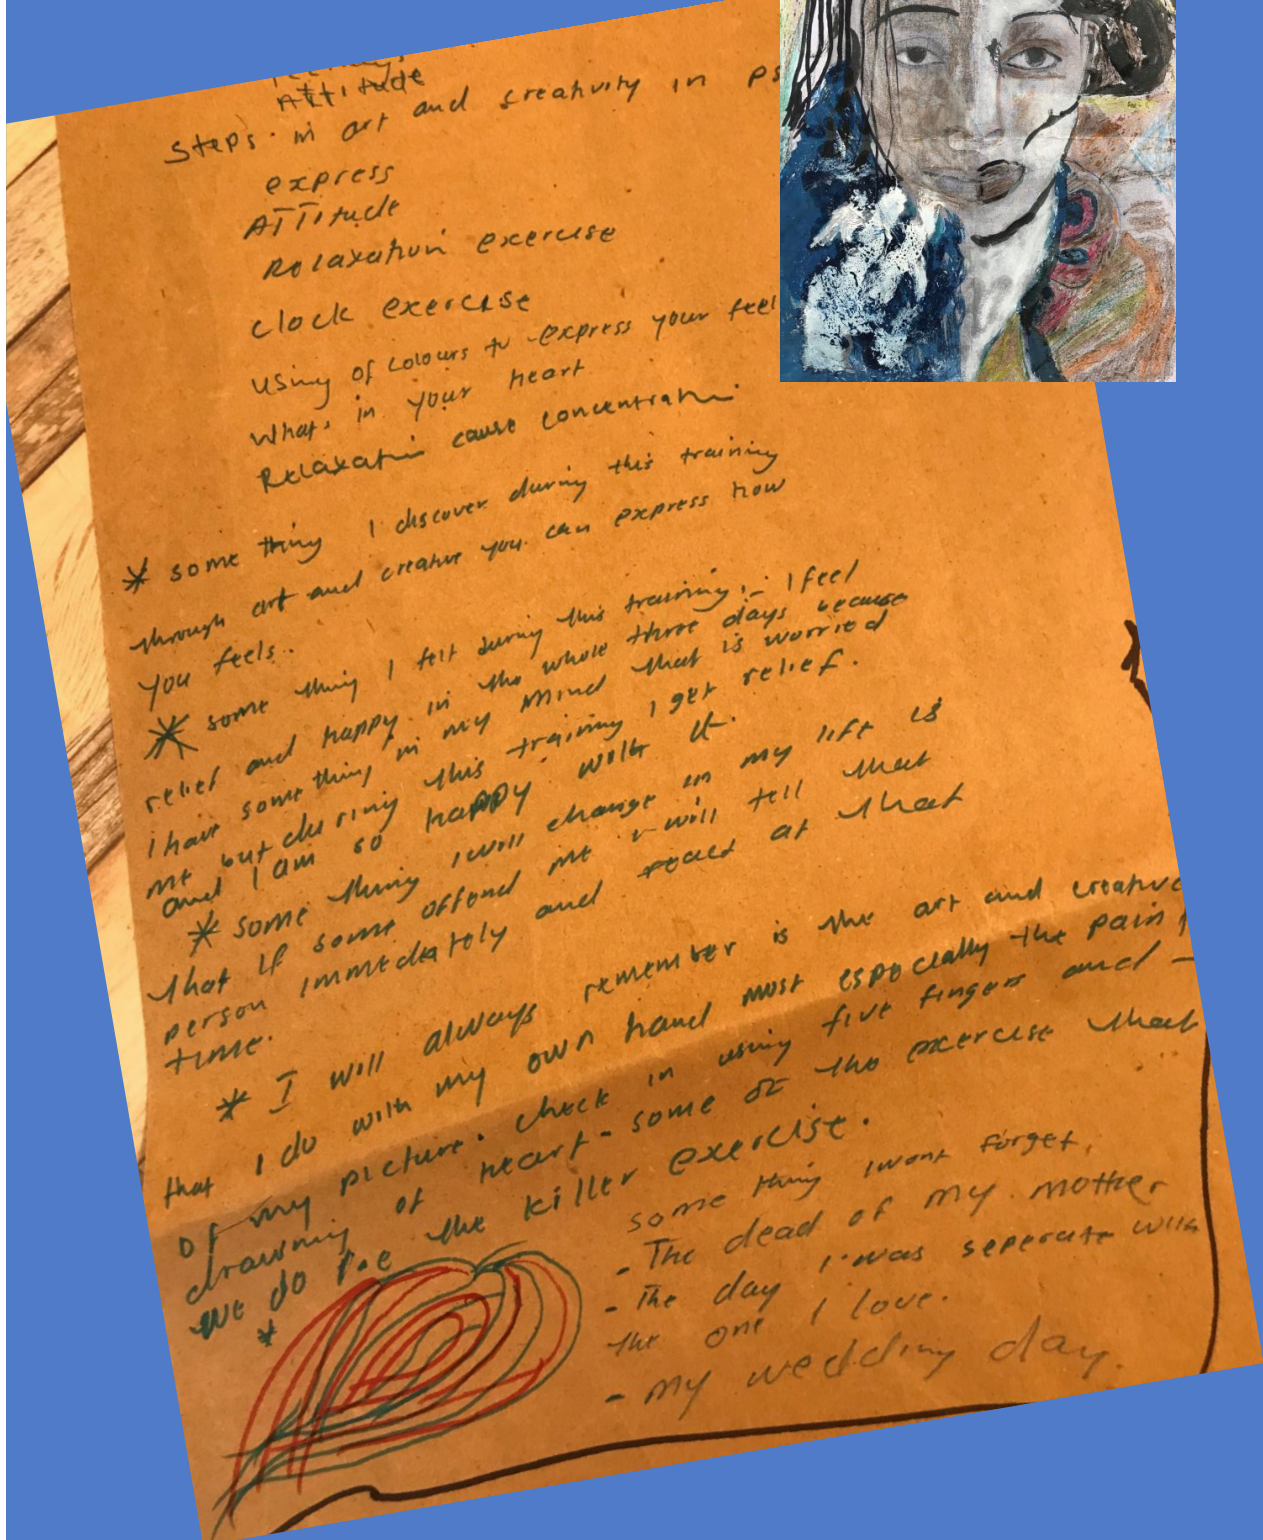 Attitude
Steps in art and creativity in ps
express
Attitude
Relaxation exercise
clock exercise
Using of colours to express your feel
what's in your heart
Relaxation cause concentration
* some thing I discover during this training
through art and creative you can express how
you feels.
* some thing I felt during this training, - I feel
relief and happy in the whole three days because
I have some thing in my mind that is worried
me but during this training I get relief.
and I am so happy with it.
* some thing I will change in my lift is
that if some offend me I will tell that
person immediately and at that
time.
* I will always remember is the art and creative
that I do with my own hand most especially the pain
of my picture. check in using five fingers and -
drawing of heart - some of the exercise that
we do the killer exercise.
*
some thing I wont forget,
- The dead of my mother
- The day I was seperate with
the one I love.
- my wedding day.